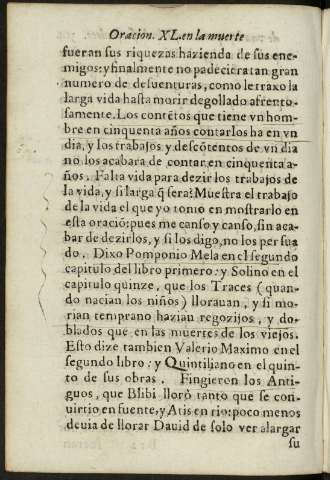 Oracion. XL. en la muerte
fueran sus riquezas hazienda de sus ene-
migos: y finalmente no padeciera tan gran
numero de desuenturas, como le traxo la
larga vida hasta morir degollado afrento-
samente. Los contẽtos que tiene vn hom-
bre en cinquenta años contarlos ha en vn
dia, y los trabajos y descõtentos de vn dia
no los acabara de contar en cinquenta a-
ños. Falta vida para dezir los trabajos de
la vida, y si larga q̃ sera? Muestra el trabajo
de la vida el que yo tomo en mostrarlo en
esta oraciõ: pues me canso y canso, sin aca-
bar de dezirlos, y si los digo, no los persua
do. Dixo Pomponio Mela en el segundo
capitulo del libro primero: y Solino en el
capitulo quinze, que los Traces (quan-
do nacian los niños) llorauan, y si mo-
rian temprano hazian regozijos, y do-
blados que en las muertes de los viejos.
Esto dize tambien Valerio Maximo en el
segundo libro: y Quintiliano en el quin-
to de sus obras. Fingieron los Anti-
guos, que Blibi llorò tanto que se con-
uirtio en fuente, y Atis en rio: poco menos
deuia de llorar Dauid de solo ver alargar
su